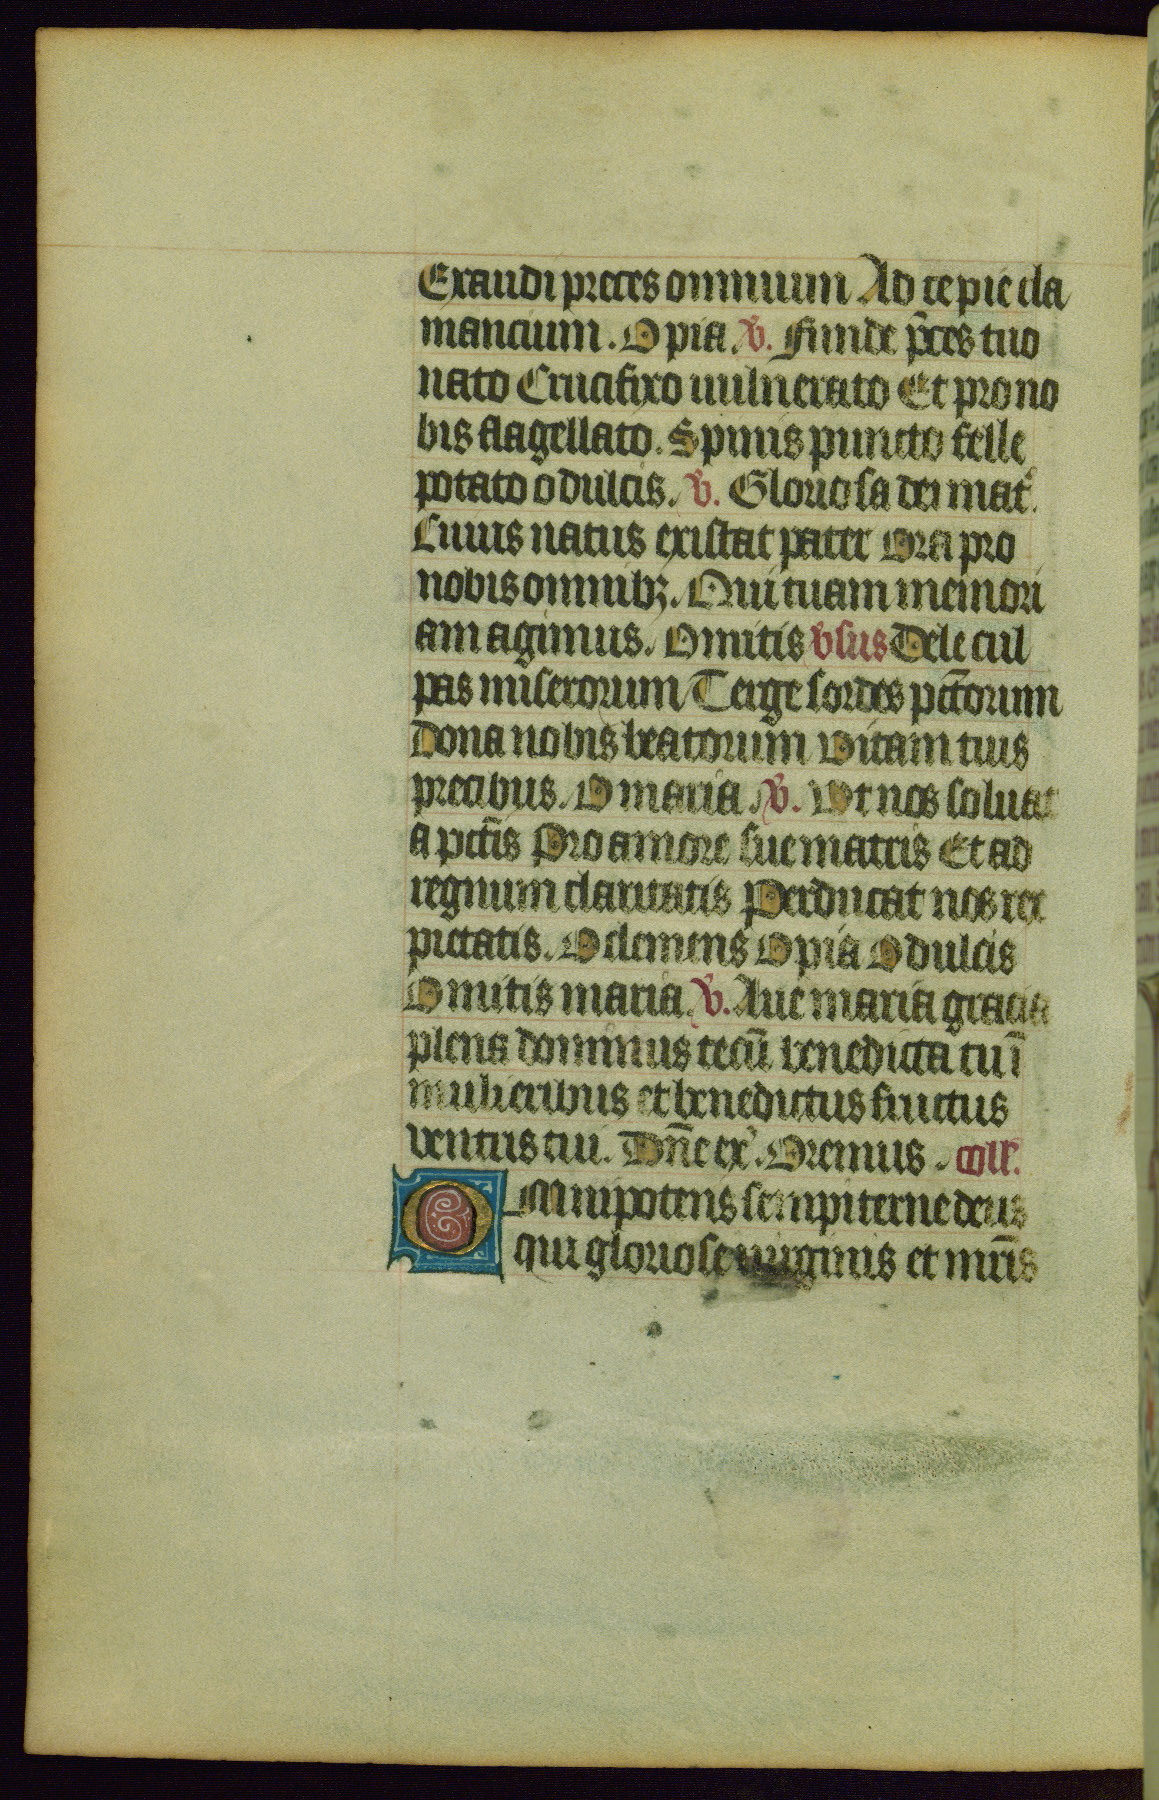 Exaudi preces omnium Ad te pie cla
mancium. O pia. v. Funde p̄ces tuo
nato Crucifixo uulnerato Et pro no
bis flagellato. Spinis puncto felle
potato o dulcis. v. Gloriosa dei mat᷒.
Cuius natus existat pater Ora pro
nobis omnibꝫ. Qui tuam memori
am agimus. O mitis v̉sus Dele cul
pas miserorum Terge sordes pct̄orum
Dona nobis beatorum Vitam tuis
precibus. O maria. v. Vt nos soluat
a pctīs Pro amore sue matris Et ad
regnum claritatis Perducat nos rex
pietatis. O clemens O pia O dulcis
O mitis maria. v. Aue maria gracia
plena dominus tecū benedicta tu ī
mulieribus et benedictus fructus
ventris tui. Dn̄e ex᷒. Oremus. coll᷒.
Omnipotens sempiterne deus
qui gloriose uirginis et mr̄is